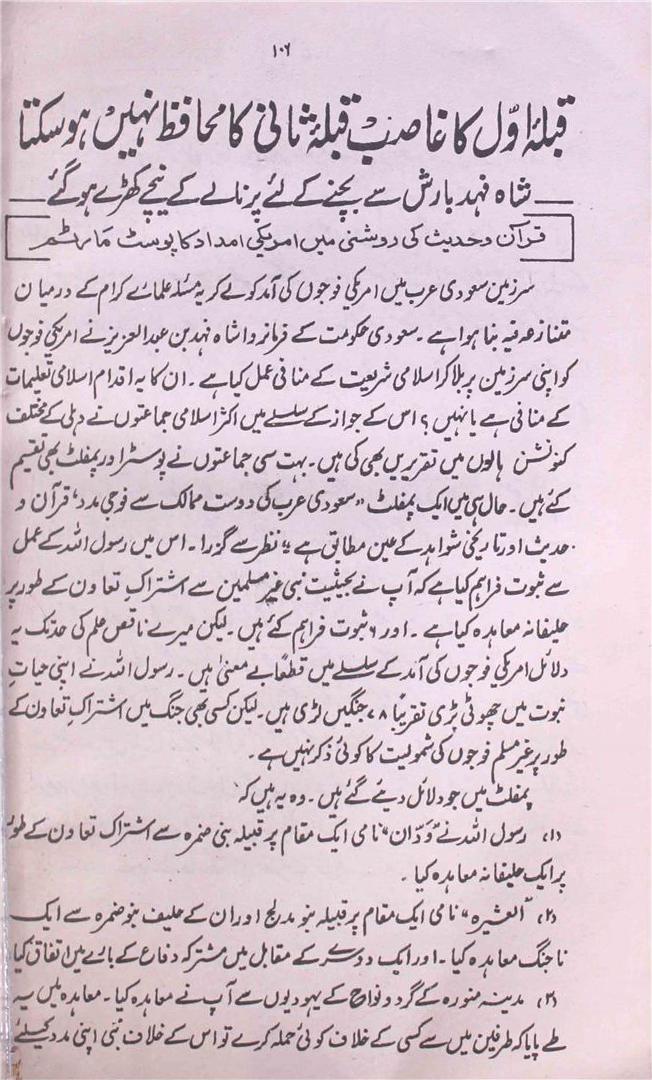 ۱۰۶
قبلۂ اوّل کا غاصب قبلۂ ثانی کا محافظ نہیں ہو سکتا
شاہ فہد بارش سے بچنے کے لئے پرنالے کے نیچے کھڑے ہو گئے
قرآن وحدیث کی روشنی میں امریکی امداد کا پوسٹ مارٹم
سرزمین سعودی عرب میں امریکی فوجوں کی آمد کو لے کر یہ مسئلہ علمائے کرام کے درمیان
متنازعہ فیہ بنا ہوا ہے۔ سعودی حکومت کے فرمانروا شاہ فہد بن عبدالعزیز نے امریکی فوجوں
کو اپنی سرزمین پر بلا کر اسلامی شریعت کے منافی عمل کیا ہے۔ ان کا یہ اقدام اسلامی تعلیمات
کے منافی ہے یا نہیں؟ اس کے جواز کے سلسلے میں اکثر اسلامی جماعتوں نے دہلی کے مختلف
کنونشن ہالوں میں تقریریں بھی کی ہیں۔ بہت سی جماعتوں نے پوسٹر اور پمفلٹ بھی تقسیم
کئے ہیں۔ حال ہی میں ایک پمفلٹ "سعودی عرب کی دوست ممالک سے فوجی مدد، قرآن و
حدیث اور تاریخی شواہد کے عین مطابق ہے" نظر سے گزرا۔ اس میں رسول اللہ کے عمل
سے ثبوت فراہم کیا ہے کہ آپ نے بحیثیت نبی غیر مسلمین سے اشتراکِ تعاون کے طور پر
حلیفانہ معاہدہ کیا ہے۔ اور ۶ ثبوت فراہم کئے ہیں۔ لیکن میرے ناقص علم کی حد تک یہ
دلائل امریکی فوجوں کی آمد کے سلسلے میں قطعاً بے معنیٰ ہیں۔ رسول اللہ نے اپنی حیاتِ
نبوت میں چھوٹی بڑی تقریباً ۷۸ جنگیں لڑی ہیں۔ لیکن کسی بھی جنگ میں اشتراکِ تعاون کے
طور پر غیر مسلم فوجوں کی شمولیت کا کوئی ذکر نہیں ہے۔
پمفلٹ میں جو دلائل دیئے گئے ہیں۔ وہ یہ ہیں کہ
(۱) رسول اللہ نے "وَدّان" نامی ایک مقام پر قبیلہ بنی ضمرہ سے اشتراک تعاون کے طور
پر ایک حلیفانہ معاہدہ کیا۔
(۲) "العشیرہ" نامی ایک مقام پر قبیلہ بنو مدلج اور ان کے حلیف بنو ضمرہ سے ایک
ناجنگ معاہدہ کیا۔ اور ایک دوسرے کے مقابل میں مشترکہ دفاع کے بارے میں اتفاق کیا
(۳) مدینہ منورہ کے گرد و نواح کے یہودیوں سے آپ نے معاہدہ کیا۔ معاہدہ میں یہ
طے پایا کہ طرفین میں سے کسی کے خلاف کوئی حملہ کرے تو اس کے خلاف نبی اپنی مدد کیلئے